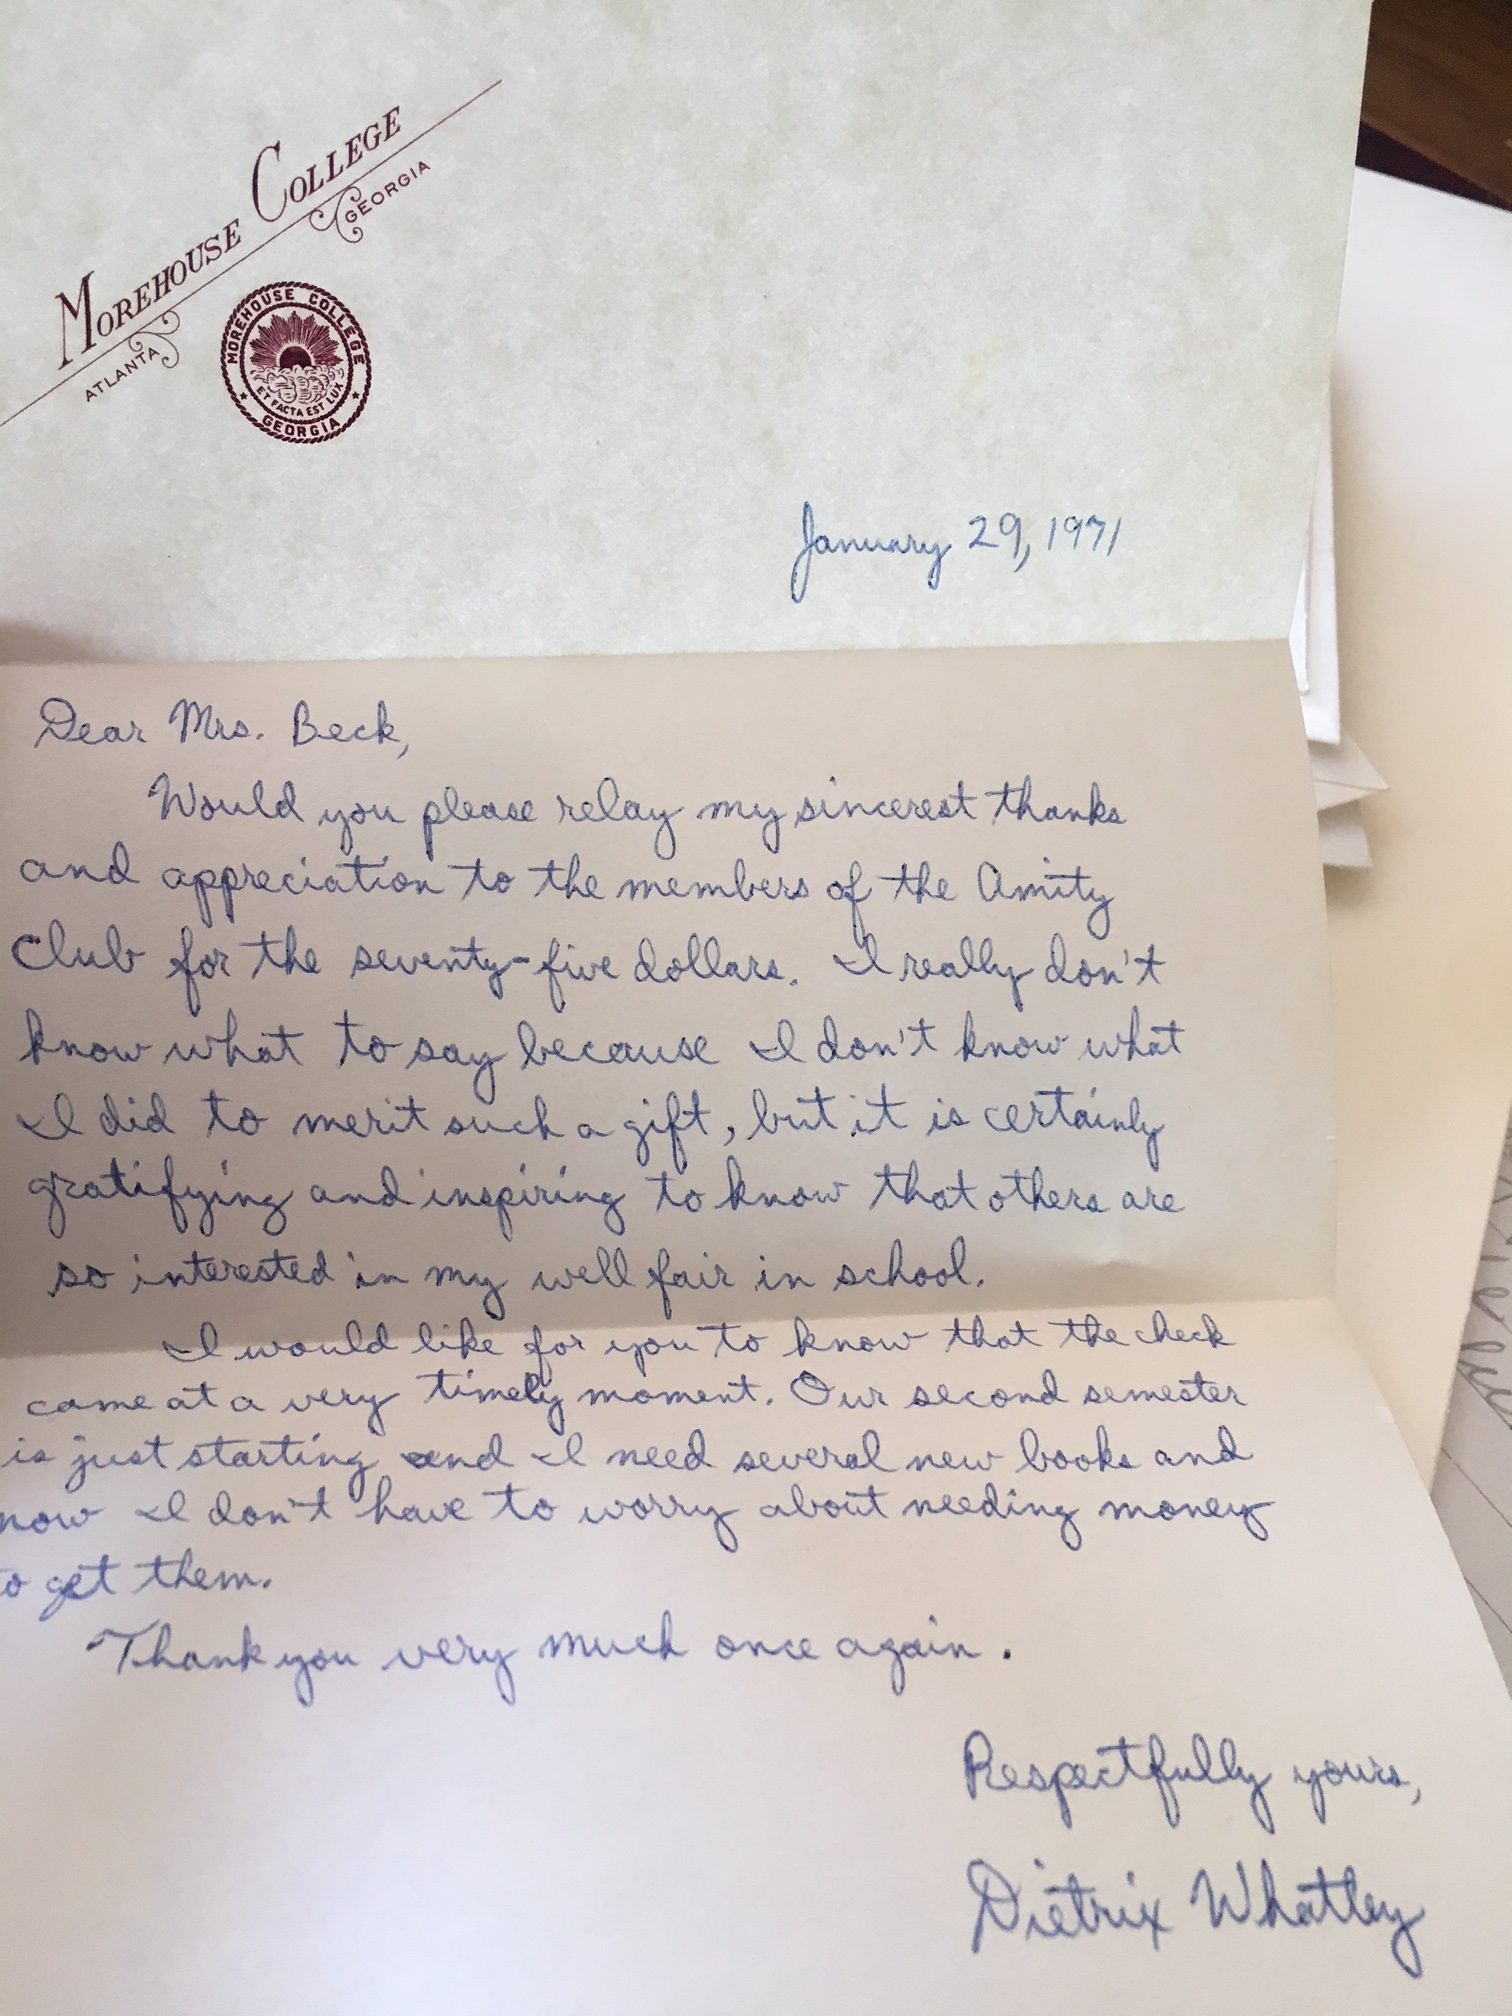 MOREHOUSE COLLEGE
ATLANTA GEORGIA
MOREHOUSE COLLEGE
ET FACTA EST LUX
GEORGIA
January 29, 1971
Dear Mrs. Beck,
Would you please relay my sincerest thanks
and appreciation to the members of the Amity
Club for the seventy-five dollars. I really don't
know what to say because I don't know what
I did to merit such a gift, but it is certainly
gratifying and inspiring to know that others are
so interested in my well fair in school.
I would like for you to know that the check
came at a very timely moment. Our second semester
is just starting and I need several new books and
now I don't have to worry about needing money
to get them.
Thank you very much once again.
Respectfully yours,
Dietrix Whatley